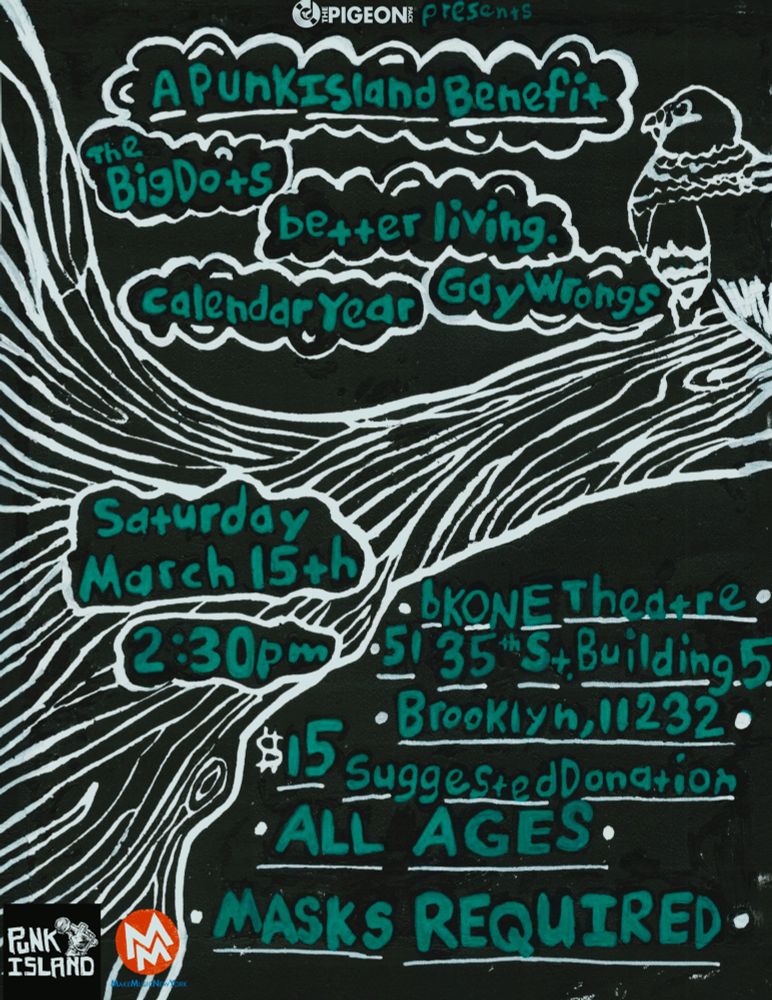 THE PIGEON PACK presents
A Punk Island Benefit
The
Big Dots
better living.
calendar Year
Gay Wrongs
Saturday
March 15th
2:30pm
bKONE Theatre
51 35th St. Building 5
Brooklyn, 11232
$15
Suggested Donation
ALL AGES
MASKS REQUIRED
PUNK
ISLAND
MM
MAKEMUSICNEWYORK